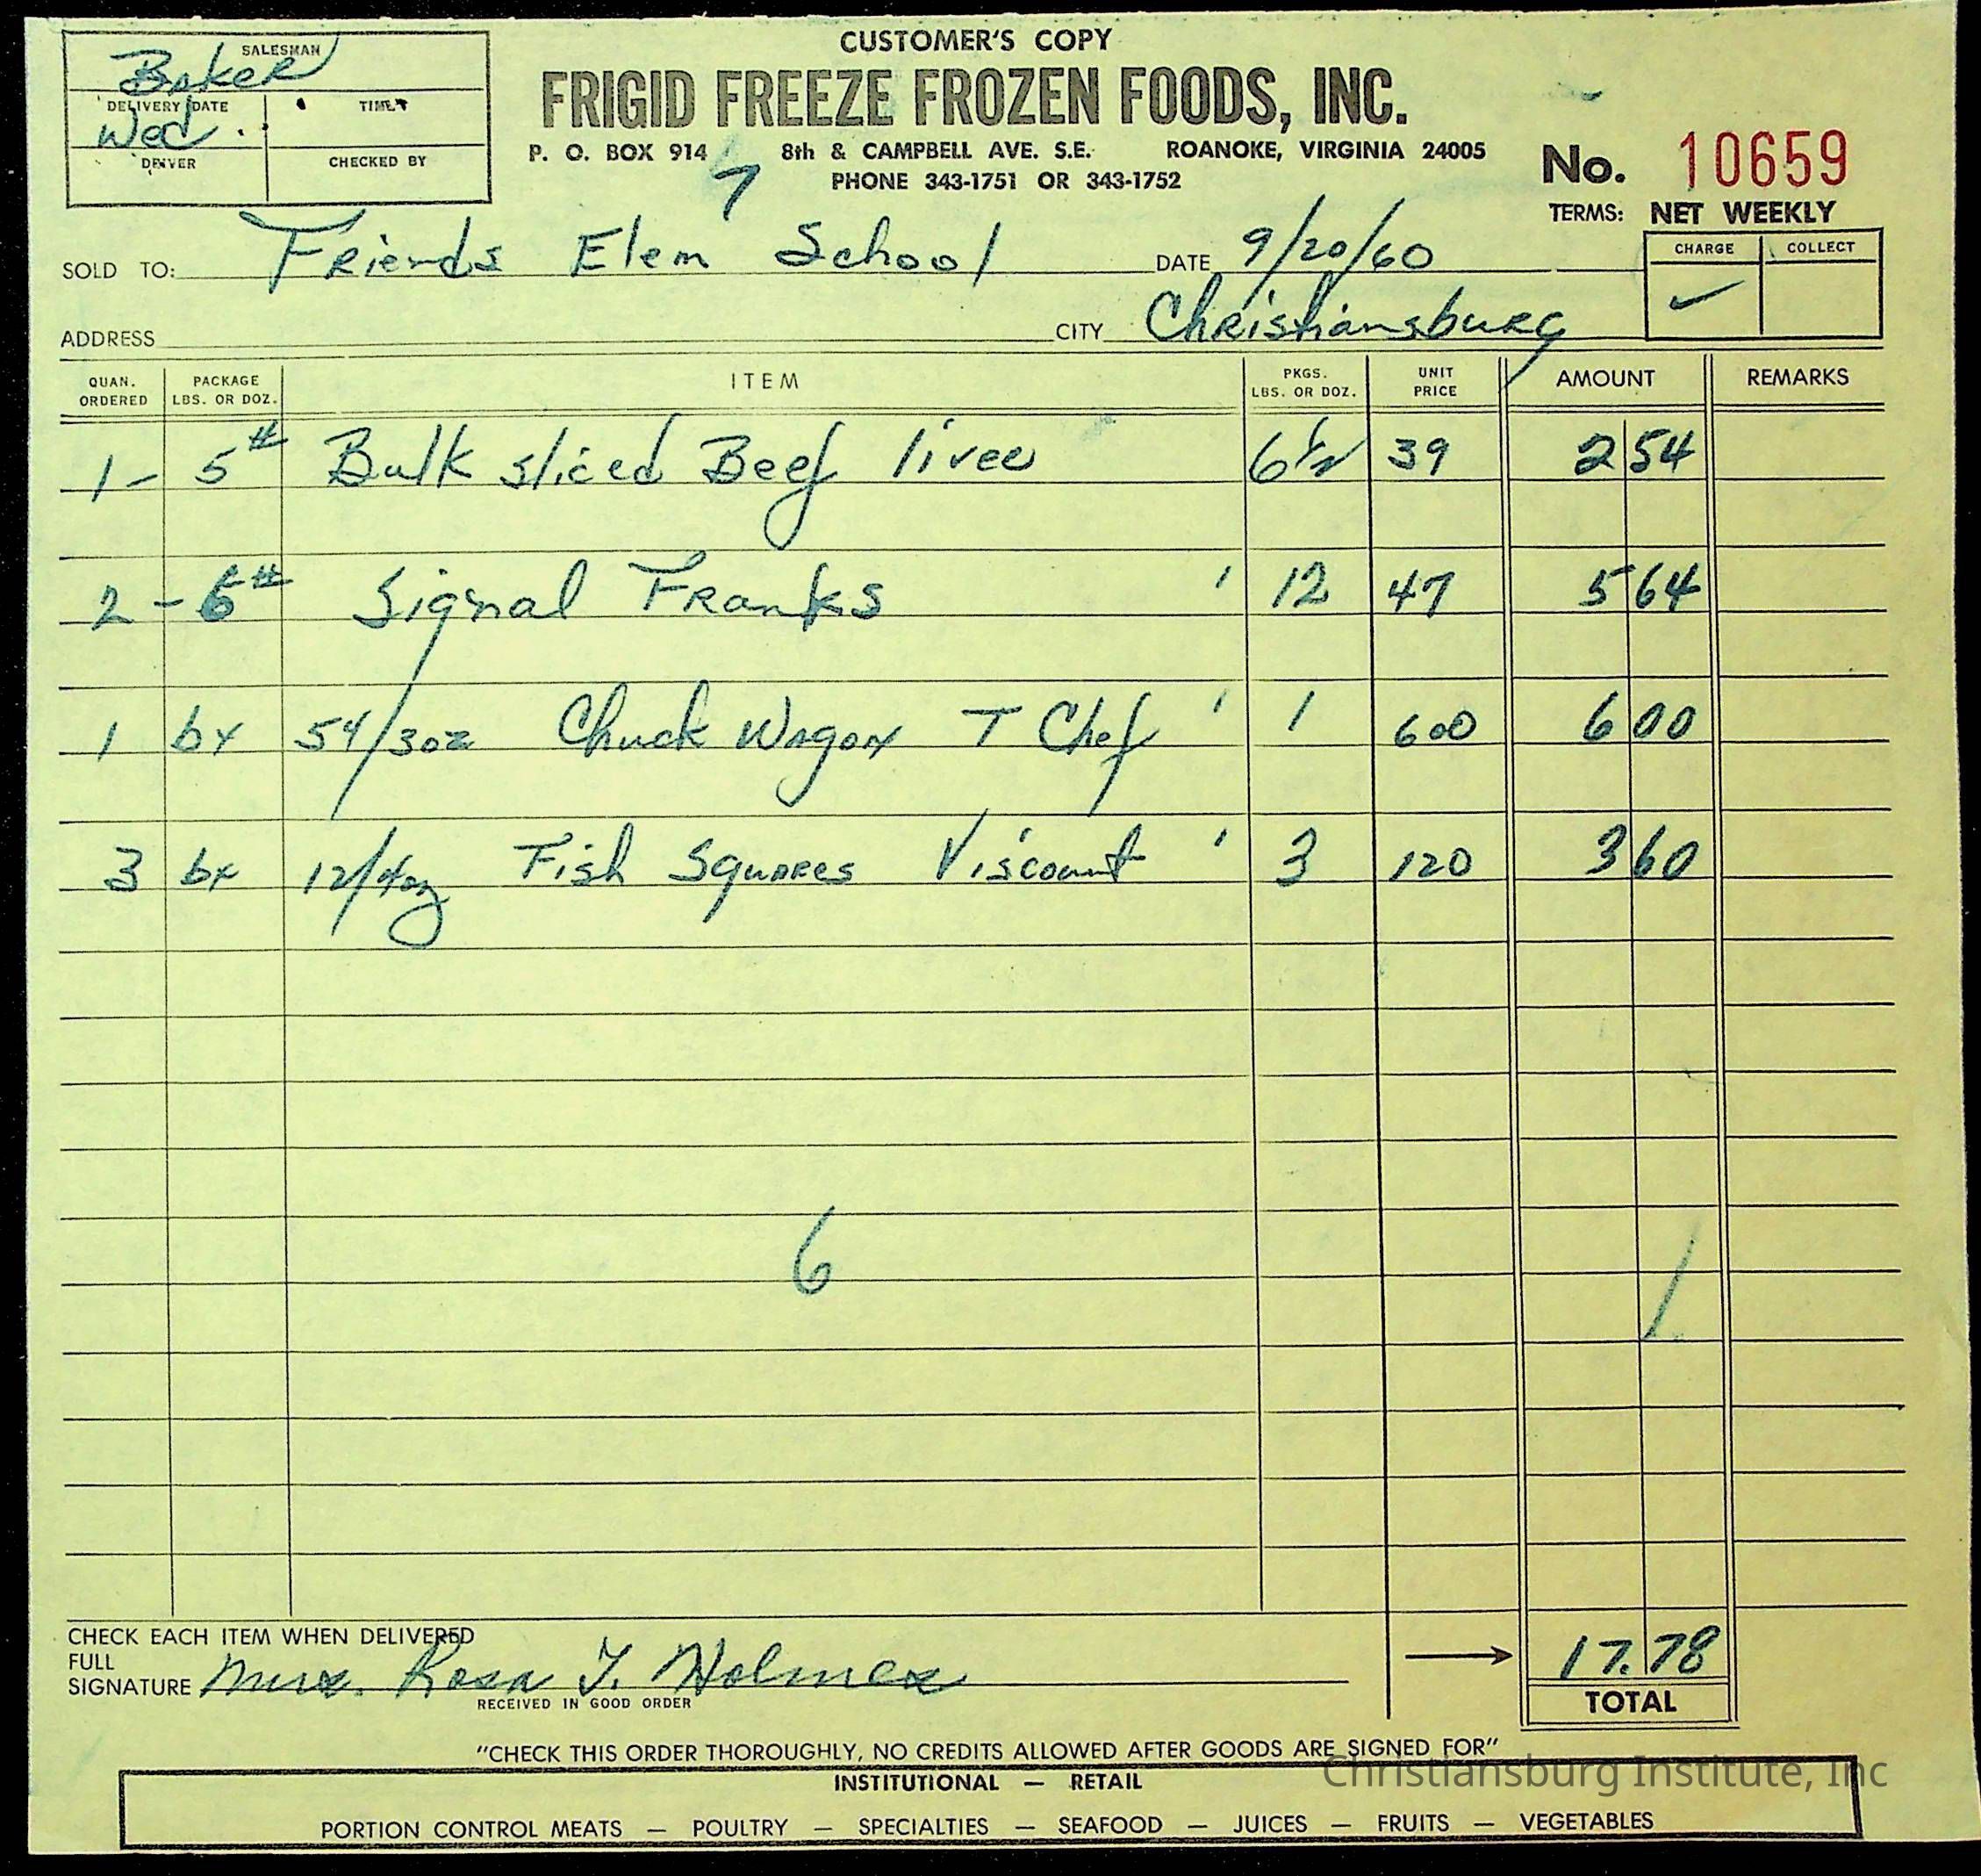 CUSTOMER'S COPY
SALESMAN
Baker
DELIVERY DATE TIME
Wed.
DRIVER CHECKED BY
FRIGID FREEZE FROZEN FOODS, INC.
P. O. BOX 914 8th & CAMPBELL AVE. S.E. ROANOKE, VIRGINIA 24005
7
PHONE 343-1751 OR 343-1752
No. 10659
TERMS: NET WEEKLY
SOLD TO: Friends Elem School DATE 9/20/60
CHARGE COLLECT
✓
ADDRESS CITY Christiansburg
QUAN. ORDERED PACKAGE LBS. OR DOZ. ITEM PKGS. LBS. OR DOZ. UNIT PRICE AMOUNT REMARKS
1 - 5# Bulk sliced Beef liver 6 1/2 39 2 54
2 - 6# Signal Franks ' 12 47 5 64
1 bx 54/3oz Chuck Wagon T Chef ' 1 600 6 00
3 bx 12/4oz Fish Squares Viscount ' 3 120 3 60
6
CHECK EACH ITEM WHEN DELIVERED
FULL
SIGNATURE Mrs. Rosa T. Holmes
RECEIVED IN GOOD ORDER
17.78
TOTAL
"CHECK THIS ORDER THOROUGHLY, NO CREDITS ALLOWED AFTER GOODS ARE SIGNED FOR"
Christiansburg Institute, Inc
INSTITUTIONAL — RETAIL
PORTION CONTROL MEATS — POULTRY — SPECIALTIES — SEAFOOD — JUICES — FRUITS — VEGETABLES